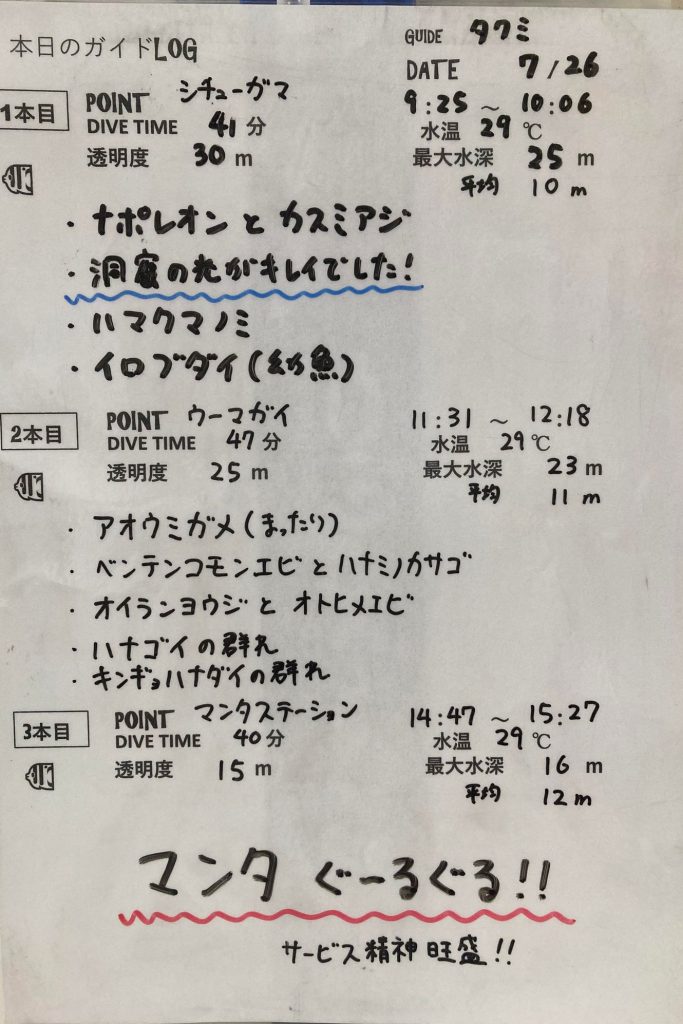 本日のガイドLOG
GUIDE タクミ
DATE 7/26
1本目
POINT シチューガマ
9:25 ~ 10:06
DIVE TIME 41分
水温 29℃
透明度 30m
最大水深 25m
平均 10m
・ナポレオンとカスミアジ
・洞窟の光がキレイでした!
・ハマクマノミ
・イロブダイ(幼魚)
2本目
POINT ウーマガイ
11:31 ~ 12:18
DIVE TIME 47分
水温 29℃
透明度 25m
最大水深 23m
平均 11m
・アオウミガメ(まったり)
・ベンテンコモンエビとハナミノカサゴ
・オイランヨウジとオトヒメエビ
・ハナゴイの群れ
・キンギョハナダイの群れ
3本目
POINT マンタステーション
14:47 ~ 15:27
DIVE TIME 40分
水温 29℃
透明度 15m
最大水深 16m
平均 12m
マンタ ぐーるぐる!!
サービス精神旺盛!!